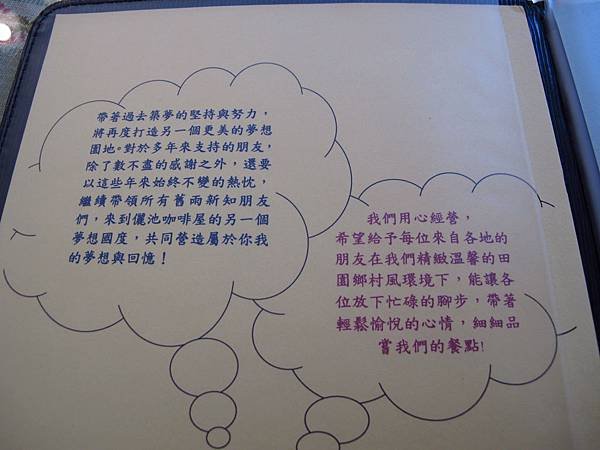 帶著過去築夢的堅持與努力,
將再度打造另一個更美的夢想
園地。對於多年來支持的朋友,
除了數不盡的感謝之外,還要
以這些年來始終不變的熱忱,
繼續帶領所有舊雨新知朋友
們,來到儷池咖啡屋的另一個
夢想國度,共同營造屬於你我
的夢想與回憶!
我們用心經營,
希望給予每位來自各地的
朋友在我們精緻溫馨的田
園鄉村風環境下,能讓各
位放下忙碌的腳步,帶著
輕鬆愉悅的心情,細細品
嘗我們的餐點!